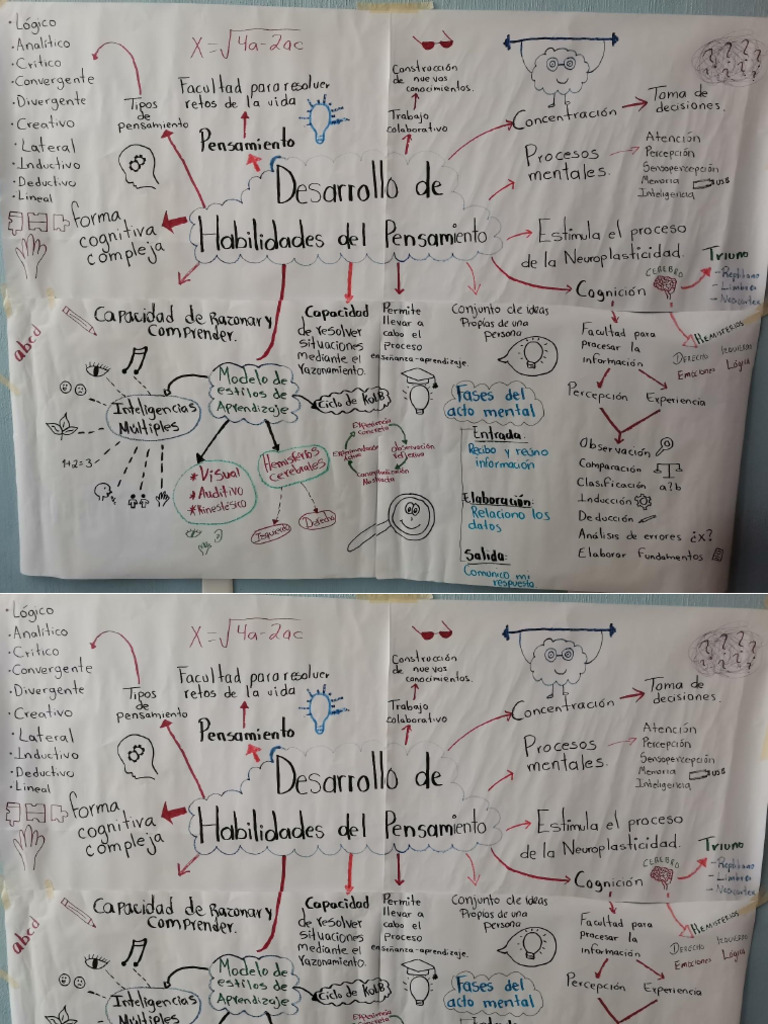 ·Lógico
·Analítico
·Crítico
·Convergente
·Divergente
·Creativo
·Lateral
·Inductivo
·Deductivo
·Lineal
Tipos
de
pensamiento
X=√4a-2ac
Facultad para resolver
retos de la vida
Pensamiento
Construcción
de nuevos
conocimientos.
Trabajo
colaborativo
Concentración
Toma de
decisiones.
? ? ? ? ? ?
Procesos
mentales.
Atención
Percepción
Sensopercepción
Memoria
Inteligencia
Desarrollo de
Habilidades del Pensamiento
forma
cognitiva
compleja
Estimula el proceso
de la Neuroplasticidad.
Cognición
CEREBRO
Triuno
- Reptiliano
- Límbico
- Neocortex
Hemisferios
Derecho
Emociones
Izquierdo
Lógica
abcd
Capacidad de Razonar y
Comprender.
Capacidad
de resolver
situaciones
mediante el
razonamiento.
Permite
llevar a
cabo el
proceso
enseñanza-aprendizaje.
Conjunto de ideas
Propias de una
persona
Facultad para
procesar la
información
Percepción
Experiencia
Modelo de
estilos de
Aprendizaje
Inteligencias
Múltiples
1+2=3
*Visual
*Auditivo
*Kinestésico
Hemisferios
cerebrales
Izquierdo
Derecho
Ciclo de Kolb
Experiencia
Concreta
Observación
Reflexiva
Conceptualización
Abstracta
Experimentación
Activa
Fases del
acto mental
Entrada:
Recibo y reúno
información
Elaboración:
Relaciono los
datos
Salida:
Comunico mi
respuesta
Observación
Comparación
Clasificación a?b
Inducción
Deducción
Análisis de errores ¿x?
Elaborar Fundamentos
·Lógico
·Analítico
·Crítico
·Convergente
·Divergente
·Creativo
·Lateral
·Inductivo
·Deductivo
·Lineal
Tipos
de
pensamiento
X=√4a-2ac
Facultad para resolver
retos de la vida
Pensamiento
Construcción
de nuevos
conocimientos.
Trabajo
colaborativo
Concentración
Toma de
decisiones.
? ? ? ? ? ?
Procesos
mentales.
Atención
Percepción
Sensopercepción
Memoria
Inteligencia
Desarrollo de
Habilidades del Pensamiento
forma
cognitiva
compleja
Estimula el proceso
de la Neuroplasticidad.
Cognición
CEREBRO
Triuno
- Reptiliano
- Límbico
- Neocortex
Hemisferios
Derecho
Emociones
Izquierdo
Lógica
abcd
Capacidad de Razonar y
Comprender.
Capacidad
de resolver
situaciones
mediante el
razonamiento.
Permite
llevar a
cabo el
proceso
enseñanza-aprendizaje.
Conjunto de ideas
Propias de una
persona
Facultad para
procesar la
información
Percepción
Experiencia
Modelo de
estilos de
Aprendizaje
Inteligencias
Múltiples
Ciclo de Kolb
Experiencia
Fases del
acto mental